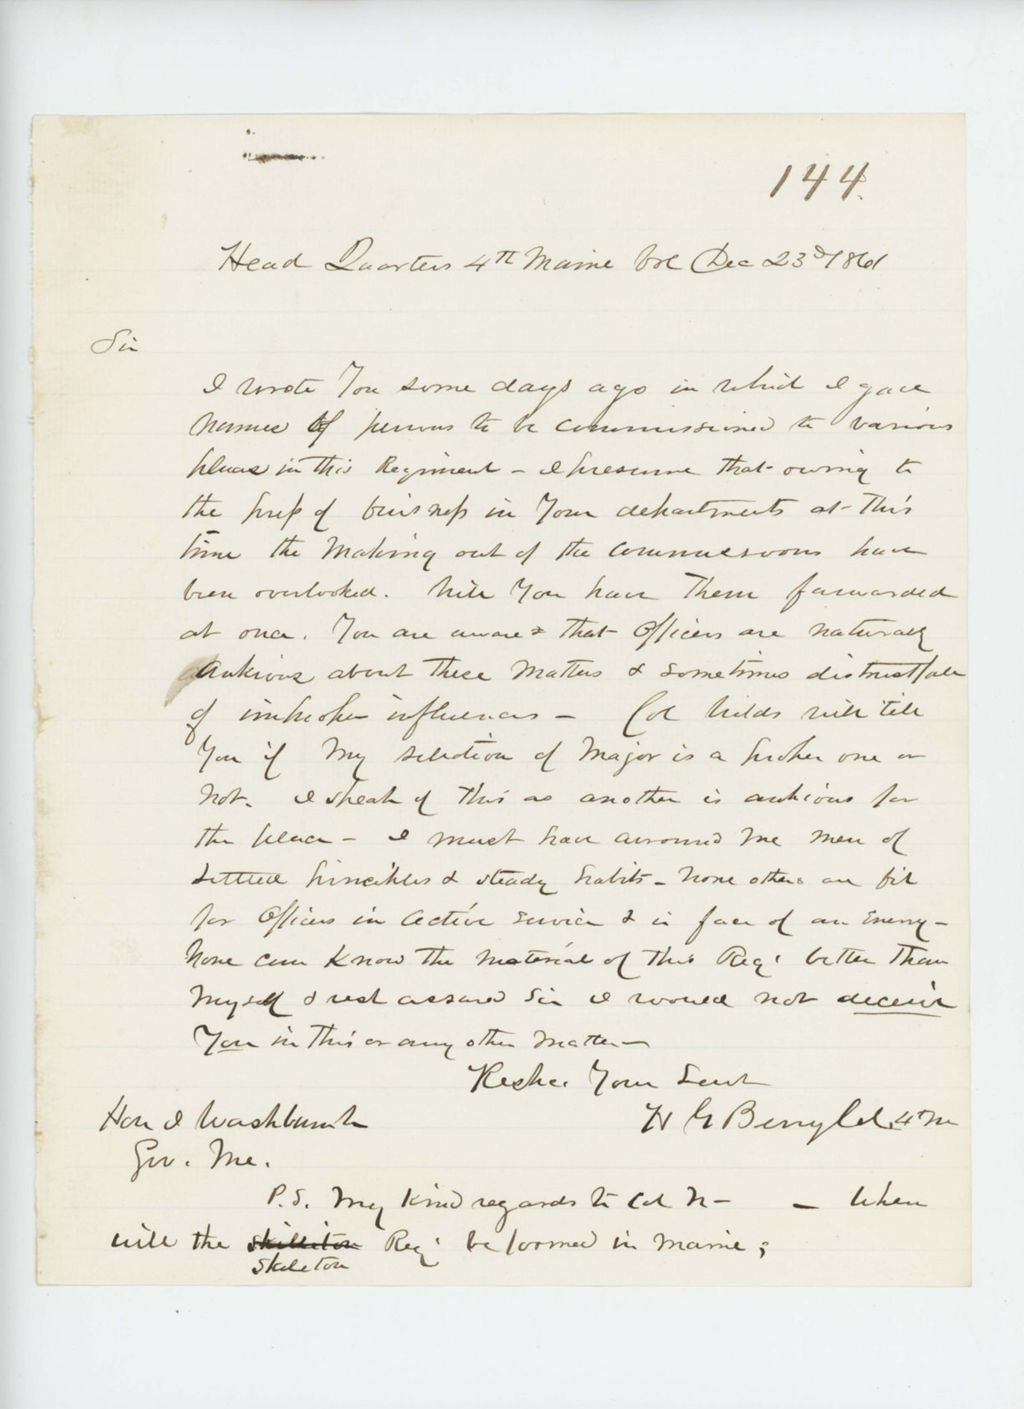 144.
Head Quarters 4th Maine Vol Dec 23d 1861
Sir
I wrote You some days ago in which I gave
names of persons to be commissioned to various
places in this Regiment - I presume that owing to
the press of buisness in Your departments at this
time the Making out of the commissions have
been overlooked. Will You have them forwarded
at once. You are aware that Officers are naturally
Ankious about these Matters & sometimes distrustful
of improper influences - Col Wilds will tell
You if My selection of Major is a proper one or
Not. I speak of this as another is ankious for
the place - I must have arround me men of
settled principles & steady habits - None others are fit
for Officers in active service & in face of an Enemy -
None can Know the material of this Reg' better than
Myself & rest assured Sir I would not deceive
You in this or any other matter -
Respec Your Servt
H G Berry Col 4th M
Hon I Washburn Jr
Gov. Me.
P.S. My Kind regards to Col - - When
will the skilliton Reg' be formed in Maine;
skeleton